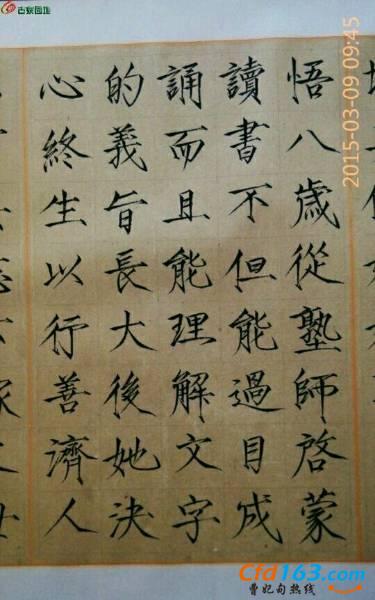 悟八歲從塾師啓蒙
讀書不但能過目成
誦而且能理解文字
的義旨長大後她決
心終生以行善濟人
2015-03-09 09:45
古泉园地
Cfd163.com
曹妃甸热线